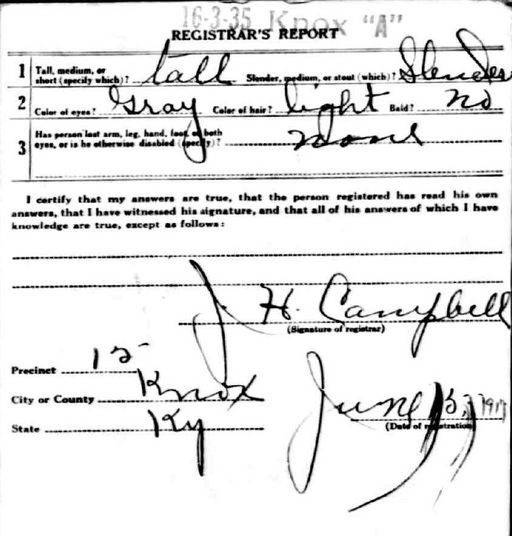 16-3-35 Knox "A"
REGISTRAR'S REPORT
1 Tall, medium, or short (specify which)? tall Slender, medium, or stout (which)? Slender
2 Color of eyes? Gray Color of hair? light Bald? no
3 Has person lost arm, leg, hand, foot, or both eyes, or is he otherwise disabled (specify)? none
I certify that my answers are true, that the person registered has read his own
answers, that I have witnessed his signature, and that all of his answers of which I have
knowledge are true, except as follows:
J. H. Campbell
(Signature of registrar)
Precinct 12
City or County Knox
State Ky
June 5, 1917
(Date of registration)